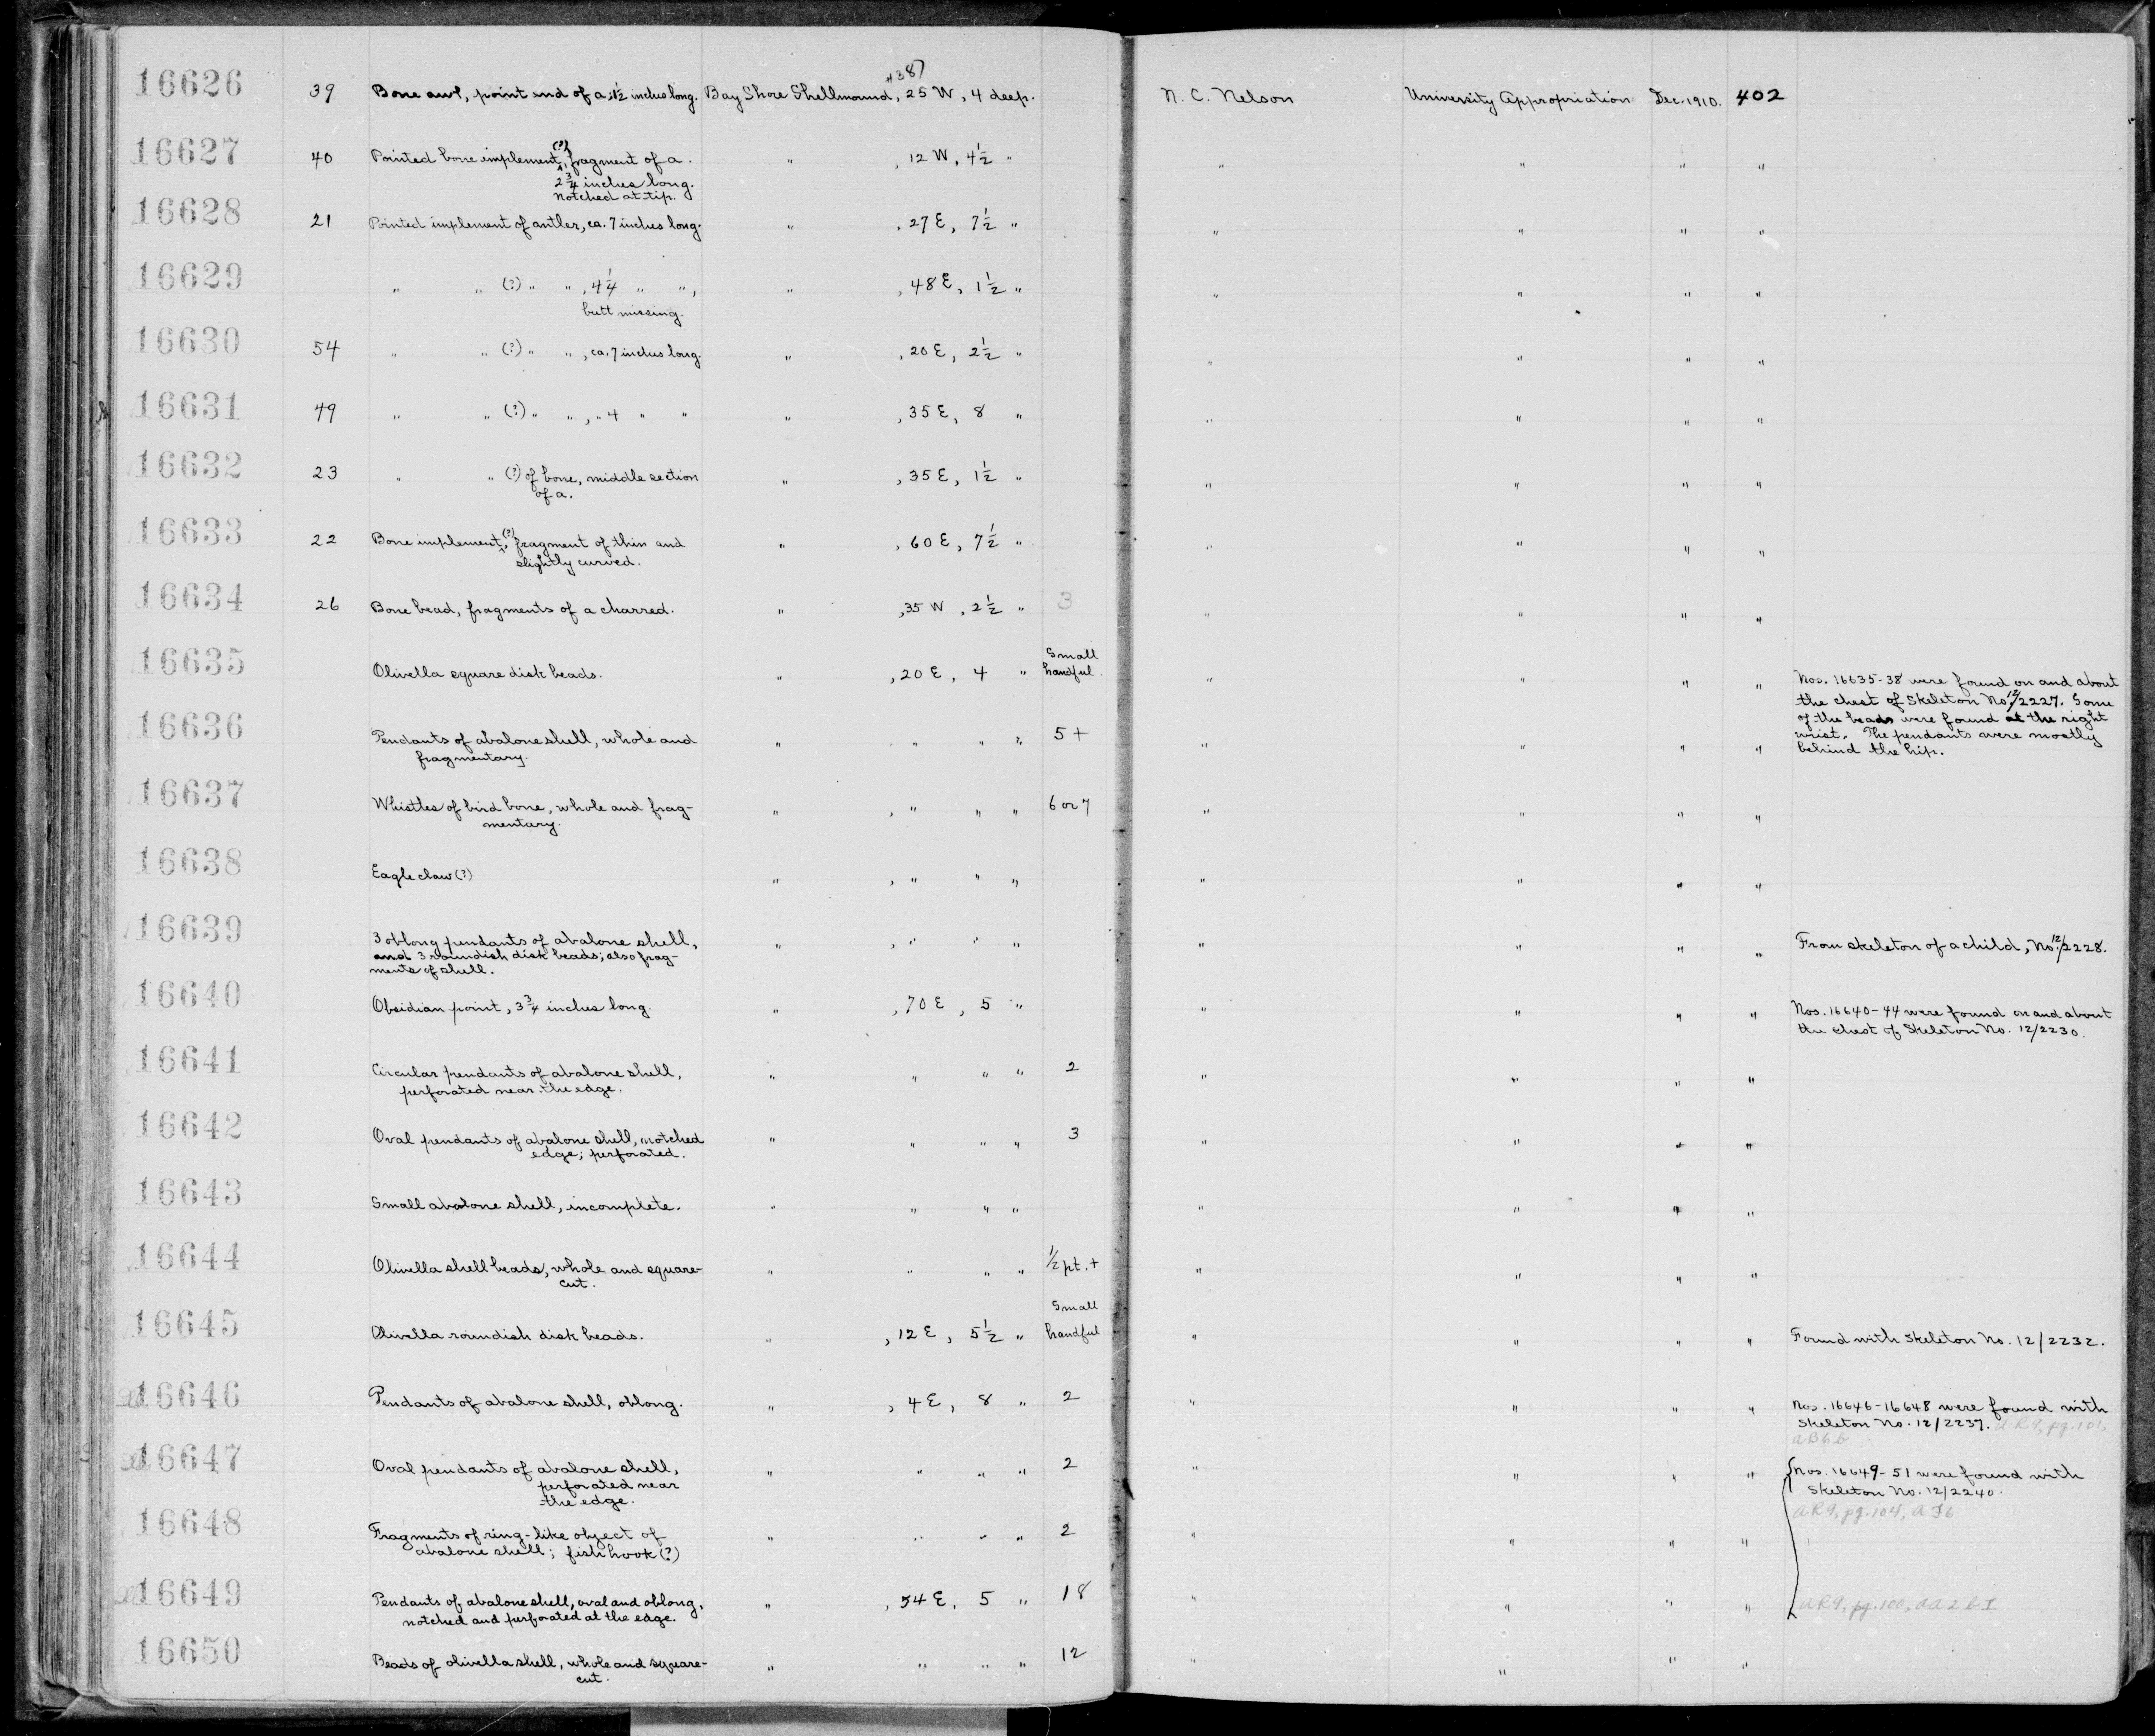 #387
16626 39 Bone awl, point end of a; 1½ inches long. Bay Shore Shellmound, 25 W, 4 deep. N. C. Nelson University Appropriation Dec. 1910. 402
16627 40 Pointed bone implement (?), fragment of a. " , 12 W, 4½ " " " " "
2¾ inches long.
Notched at tip.
16628 21 Pointed implement of antler, ca. 7 inches long. " , 27 E, 7½ " " " " "
16629 " " (?) " " , 4¼ " " , " , 48 E, 1½ " " " " "
butt missing.
16630 54 " " (?) " " , ca. 7 inches long. " , 20 E, 2½ " " " " "
16631 49 " " (?) " " , " 4 " " " , 35 E, 8 " " " " "
16632 23 " " (?) of bone, middle section " , 35 E, 1½ " " " " "
of a.
16633 22 Bone implement (?), fragment of thin and " , 60 E, 7½ " " " " "
slightly curved.
16634 26 Bone bead, fragments of a charred. " , 35 W, 2½ " 3 " " " "
Small
16635 Olivella square disk beads. " , 20 E, 4 " handful. " " " " Nos. 16635-38 were found on and about
the chest of Skeleton No. 12/2227. Some
of the beads were found at the right
wrist. The pendants were mostly
behind the hip.
16636 Pendants of abalone shell, whole and " " " " 5+ " " " "
fragmentary.
16637 Whistles of bird bone, whole and frag- " , " " " 6 or 7 " " " "
mentary.
16638 Eagle claw (?) " , " " " " " " "
16639 3 oblong pendants of abalone shell, " , " " " " " " " From skeleton of a child, No. 12/2228.
and 3 roundish disk beads; also frag-
ments of shell.
16640 Obsidian point, 3¾ inches long. " , 70 E, 5 " " " " " Nos. 16640-44 were found on and about
the chest of Skeleton No. 12/2230.
16641 Circular pendants of abalone shell, " " " " 2 " " " "
perforated near the edge.
16642 Oval pendants of abalone shell, notched " " " " 3 " " " "
edge; perforated.
16643 Small abalone shell, incomplete. " " " " " " " "
16644 Olivella shell beads, whole and square- " " " " ½ pt. + " " " "
cut.
Small
16645 Olivella roundish disk beads. " , 12 E, 5½ " handful " " " " Found with Skeleton No. 12/2232.
16646 Pendants of abalone shell, oblong. " , 4 E, 8 " 2 " " " " Nos. 16646-16648 were found with
Skeleton No. 12/2237. AR9, pg. 101,
AB6b
16647 Oval pendants of abalone shell, " " " " 2 " " " " Nos. 16649-51 were found with
perforated near
the edge.
Skeleton No. 12/2240.
AR9, pg. 104, AJ6
16648 Fragments of ring-like object of " " " " 2 " " " "
abalone shell; fish hook (?)
16649 Pendants of abalone shell, oval and oblong, " , 54 E, 5 " 18 " " " " AR9, pg. 100, AA2bI
notched and perforated at the edge.
16650 Beads of olivella shell, whole and square- " " " " 12 " " " "
cut.